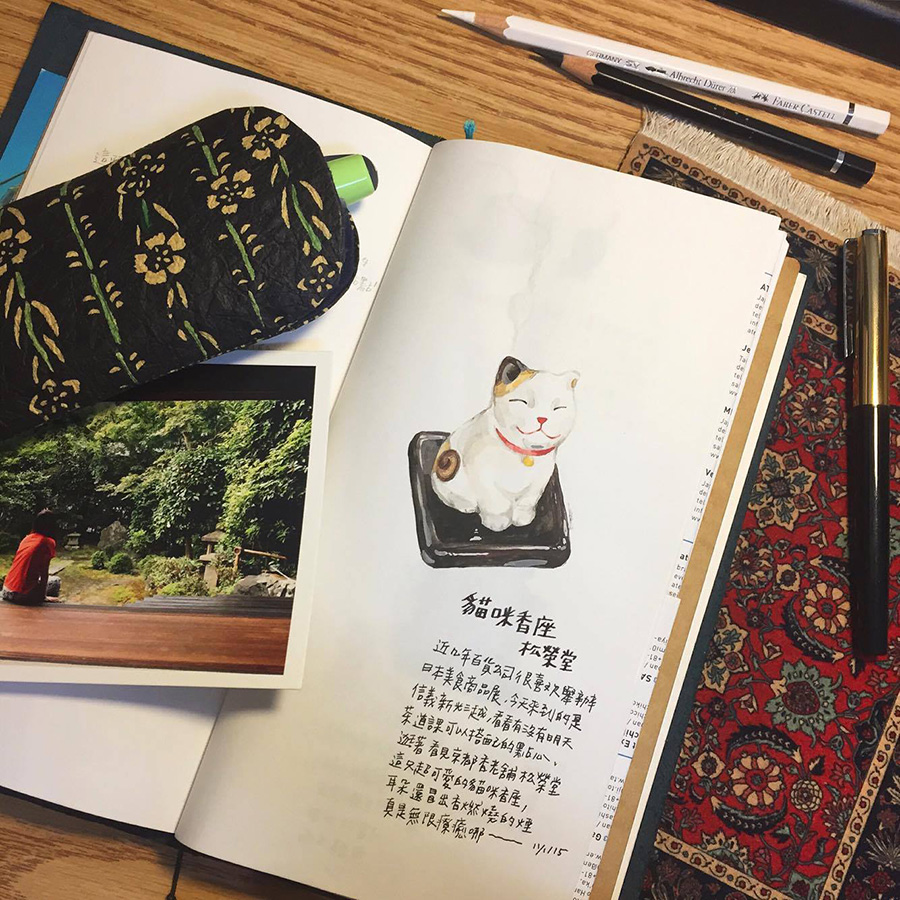 GERMANY
Albrecht Dürer
FABER CASTELL
貓咪香座
松榮堂
近幾年百貨公司很喜歡舉辦
日本美食商品展，今天來到的是
信義新光三越，看看有沒有明天
茶道課可以搭配的點心、
逛著看見京都香老舖 松榮堂
這隻超可愛的貓咪香座，
耳朵還冒出香燃燒的煙
真是無限療癒哪——
11/1/15